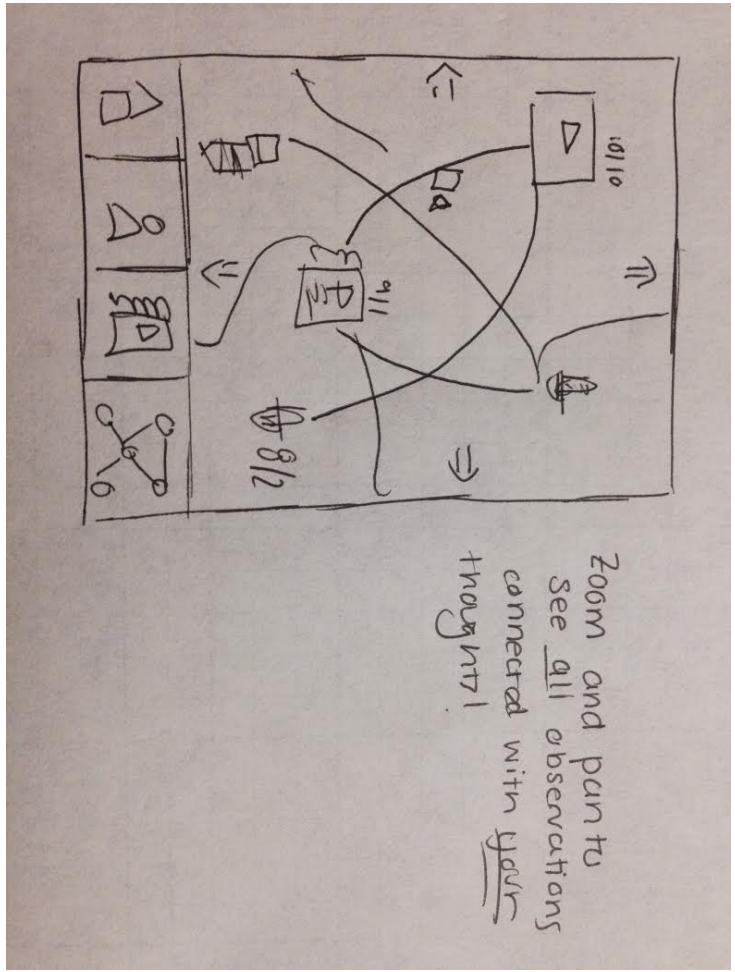 10/10
9/1
8/2
Zoom and pan to
see all observations
connected with your
thoughts!